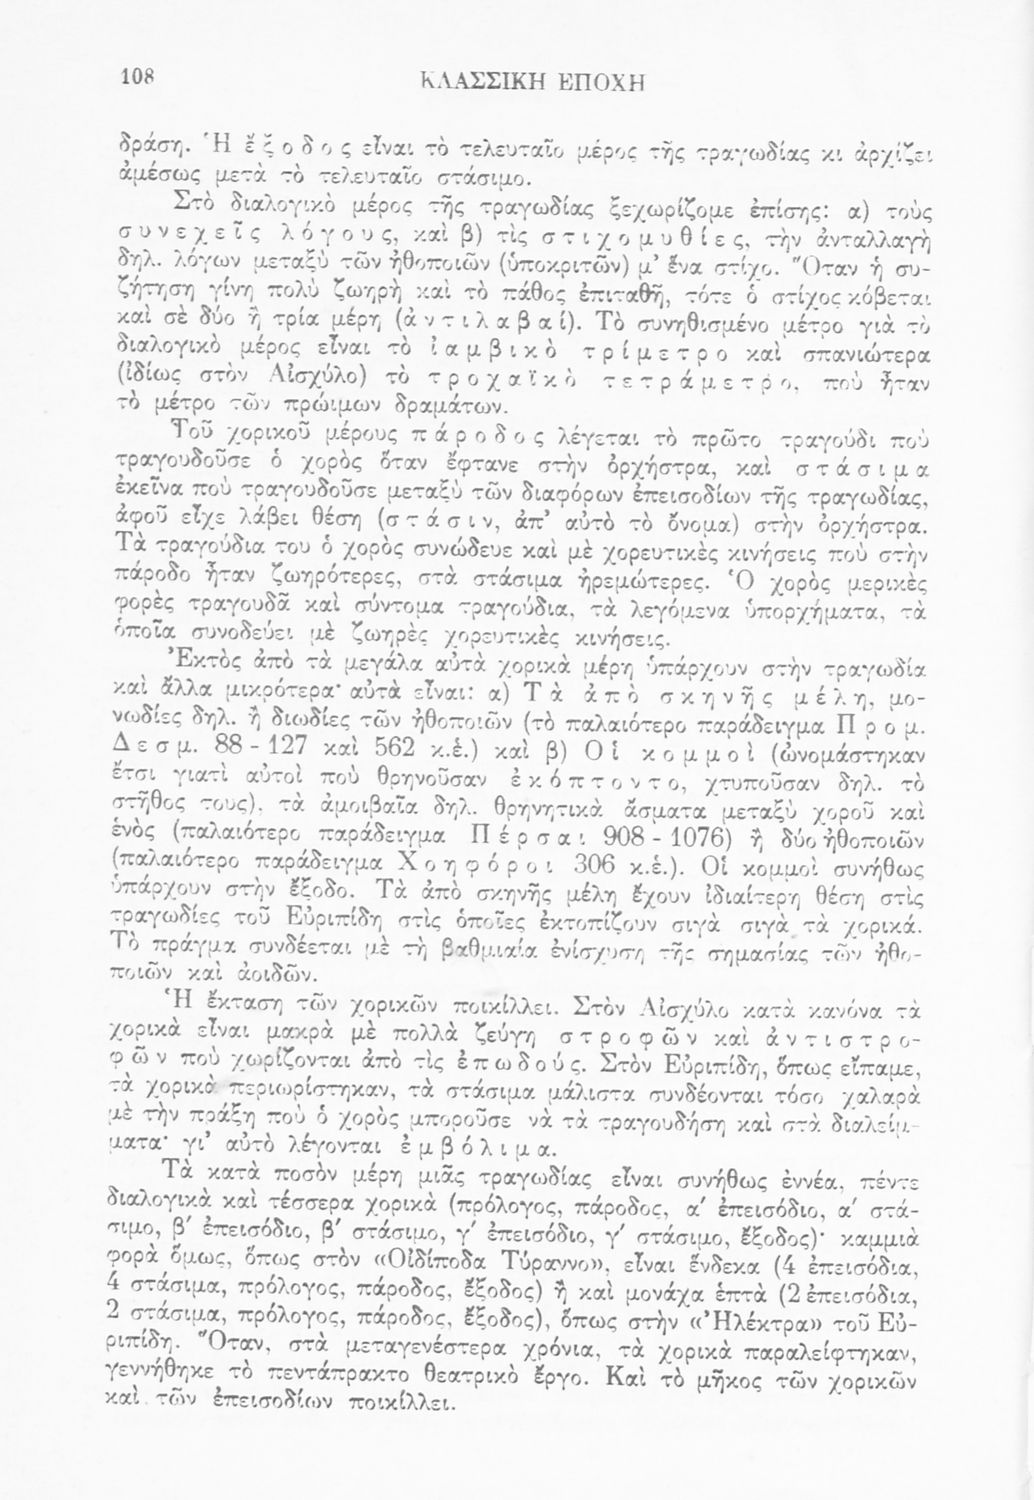 108
ΚΛΑΣΣΙΚΗ ΕΠΟΧΗ
δράση. Ἡ ἔ ξ ο δ ο ς εἶναι τὸ τελευταῖο μέρος τῆς τραγωδίας κι ἀρχίζει
ἀμέσως μετὰ τὸ τελευταῖο στάσιμο.
Στὸ διαλογικὸ μέρος τῆς τραγωδίας ξεχωρίζομε ἐπίσης: α) τοὺς
σ υ ν ε χ ε ῖ ς λ ό γ ο υ ς, καὶ β) τὶς σ τ ι χ ο μ υ θ ί ε ς, τὴν ἀνταλλαγὴ
δηλ. λόγων μεταξὺ τῶν ἠθοποιῶν (ὑποκριτῶν) μ’ ἕνα στίχο. Ὅταν ἡ συ-
ζήτηση γίνη πολὺ ζωηρὴ καὶ τὸ πάθος ἐπιταθῆ, τότε ὁ στίχος κόβεται
καὶ σὲ δύο ἢ τρία μέρη (ἀ ν τ ι λ α β α ί). Τὸ συνηθισμένο μέτρο γιὰ τὸ
διαλογικὸ μέρος εἶναι τὸ ἰ α μ β ι κ ὸ τ ρ ί μ ε τ ρ ο καὶ σπανιώτερα
(ἰδίως στὸν Αἰσχύλο) τὸ τ ρ ο χ α ϊ κ ὸ τ ε τ ρ ά μ ε τ ρ ο, ποὺ ἦταν
τὸ μέτρο τῶν πρώιμων δραμάτων.
Τοῦ χορικοῦ μέρους π ά ρ ο δ ο ς λέγεται τὸ πρῶτο τραγούδι ποὺ
τραγουδοῦσε ὁ χορὸς ὅταν ἔφτανε στὴν ὀρχήστρα, καὶ σ τ ά σ ι μ α
ἐκεῖνα ποὺ τραγουδοῦσε μεταξὺ τῶν διαφόρων ἐπεισοδίων τῆς τραγωδίας,
ἀφοῦ εἶχε λάβει θέση (σ τ ά σ ι ν, ἀπ’ αὐτὸ τὸ ὄνομα) στὴν ὀρχήστρα.
Τὰ τραγούδια του ὁ χορὸς συνώδευε καὶ μὲ χορευτικὲς κινήσεις ποὺ στὴν
πάροδο ἦταν ζωηρότερες, στὰ στάσιμα ἠρεμώτερες. Ὁ χορὸς μερικὲς
φορὲς τραγουδᾶ καὶ σύντομα τραγούδια, τὰ λεγόμενα ὑπορχήματα, τὰ
ὁποῖα συνοδεύει μὲ ζωηρὲς χορευτικὲς κινήσεις.
Ἐκτὸς ἀπὸ τὰ μεγάλα αὐτὰ χορικὰ μέρη ὑπάρχουν στὴν τραγωδία
καὶ ἄλλα μικρότερα· αὐτὰ εἶναι: α) Τ ὰ ἀ π ὸ σ κ η ν ῆ ς μ έ λ η, μο-
νωδίες δηλ. ἢ διωδίες τῶν ἠθοποιῶν (τὸ παλαιότερο παράδειγμα Π ρ ο μ.
Δ ε σ μ. 88 - 127 καὶ 562 κ.ἑ.) καὶ β) Ο ἱ κ ο μ μ ο ὶ (ὠνομάστηκαν
ἔτσι γιατὶ αὐτοὶ ποὺ θρηνοῦσαν ἐ κ ό π τ ο ν τ ο, χτυποῦσαν δηλ. τὸ
στῆθος τους), τὰ ἀμοιβαῖα δηλ. θρηνητικὰ ἄσματα μεταξὺ χοροῦ καὶ
ἑνὸς (παλαιότερο παράδειγμα Π έ ρ σ α ι 908 - 1076) ἢ δύο ἠθοποιῶν
(παλαιότερο παράδειγμα Χ ο η φ ό ρ ο ι 306 κ.ἑ.). Οἱ κομμοὶ συνήθως
ὑπάρχουν στὴν ἔξοδο. Τὰ ἀπὸ σκηνῆς μέλη ἔχουν ἰδιαίτερη θέση στὶς
τραγωδίες τοῦ Εὐριπίδη στὶς ὁποῖες ἐκτοπίζουν σιγὰ σιγὰ τὰ χορικά.
Τὸ πράγμα συνδέεται μὲ τὴ βαθμιαία ἐνίσχυση τῆς σημασίας τῶν ἠθο-
ποιῶν καὶ ἀοιδῶν.
Ἡ ἔκταση τῶν χορικῶν ποικίλλει. Στὸν Αἰσχύλο κατὰ κανόνα τὰ
χορικὰ εἶναι μακρὰ μὲ πολλὰ ζεύγη σ τ ρ ο φ ῶ ν καὶ ἀ ν τ ι σ τ ρ ο-
φ ῶ ν ποὺ χωρίζονται ἀπὸ τὶς ἐ π ω δ ο ύ ς. Στὸν Εὐριπίδη, ὅπως εἴπαμε,
τὰ χορικὰ περιωρίστηκαν, τὰ στάσιμα μάλιστα συνδέονται τόσο χαλαρὰ
μὲ τὴν πράξη ποὺ ὁ χορὸς μποροῦσε νὰ τὰ τραγουδήση καὶ στὰ διαλείμ-
ματα· γι’ αὐτὸ λέγονται ἐ μ β ό λ ι μ α.
Τὰ κατὰ ποσὸν μέρη μιᾶς τραγωδίας εἶναι συνήθως ἐννέα, πέντε
διαλογικὰ καὶ τέσσερα χορικὰ (πρόλογος, πάροδος, α′ ἐπεισόδιο, α′ στά-
σιμο, β′ ἐπεισόδιο, β′ στάσιμο, γ′ ἐπεισόδιο, γ′ στάσιμο, ἔξοδος)· καμμιὰ
φορὰ ὅμως, ὅπως στὸν «Οἰδίποδα Τύραννο», εἶναι ἕνδεκα (4 ἐπεισόδια,
4 στάσιμα, πρόλογος, πάροδος, ἔξοδος) ἢ καὶ μονάχα ἑπτὰ (2 ἐπεισόδια,
2 στάσιμα, πρόλογος, πάροδος, ἔξοδος), ὅπως στὴν «Ἠλέκτρα» τοῦ Εὐ-
ριπίδη. Ὅταν, στὰ μεταγενέστερα χρόνια, τὰ χορικὰ παραλείφτηκαν,
γεννήθηκε τὸ πεντάπρακτο θεατρικὸ ἔργο. Καὶ τὸ μῆκος τῶν χορικῶν
καὶ τῶν ἐπεισοδίων ποικίλλει.